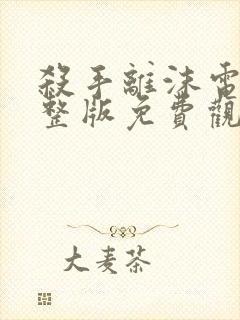 殺手離沫電
整版免費觀
大麦茶